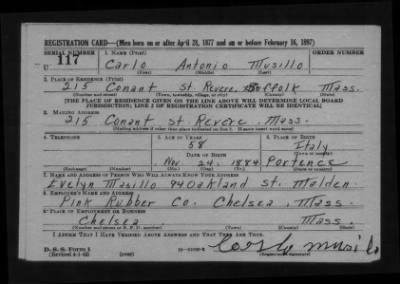 REGISTRATION CARD—(Men born on or after April 28, 1877 and on or before February 16, 1897)
SERIAL NUMBER 1. NAME (Print) ORDER NUMBER
U 117 Carlo Antonio Musillo
(First) (Middle) (Last)
2. PLACE OF RESIDENCE (Print)
215 Conant St. Revere Suffolk Mass.
(Number and street) (Town, township, village, or city) (County) (State)
[THE PLACE OF RESIDENCE GIVEN ON THE LINE ABOVE WILL DETERMINE LOCAL BOARD
JURISDICTION; LINE 2 OF REGISTRATION CERTIFICATE WILL BE IDENTICAL]
3. MAILING ADDRESS
215 Conant St. Revere, Mass.
[Mailing address if other than place indicated on line 2. If same insert word same]
4. TELEPHONE 5. AGE IN YEARS 6. PLACE OF BIRTH
58 Italy
DATE OF BIRTH (Town or county)
Nov. 24, 1884
(Exchange) (Number) (Mo.) (Day) (Yr.) (State or country)
7. NAME AND ADDRESS OF PERSON WHO WILL ALWAYS KNOW YOUR ADDRESS
Evelyn Masillo 94 Oakland St. Malden
8. EMPLOYER'S NAME AND ADDRESS
Pink Rubber Co. Chelsea, Mass.
9. PLACE OF EMPLOYMENT OR BUSINESS
Chelsea Mass.
(Number and street or R. F. D. number) (Town) (County) (State)
I AFFIRM THAT I HAVE VERIFIED ABOVE ANSWERS AND THAT THEY ARE TRUE.
D. S. S. Form 1
(Revised 4-1-42) (over) (Registrant's signature)